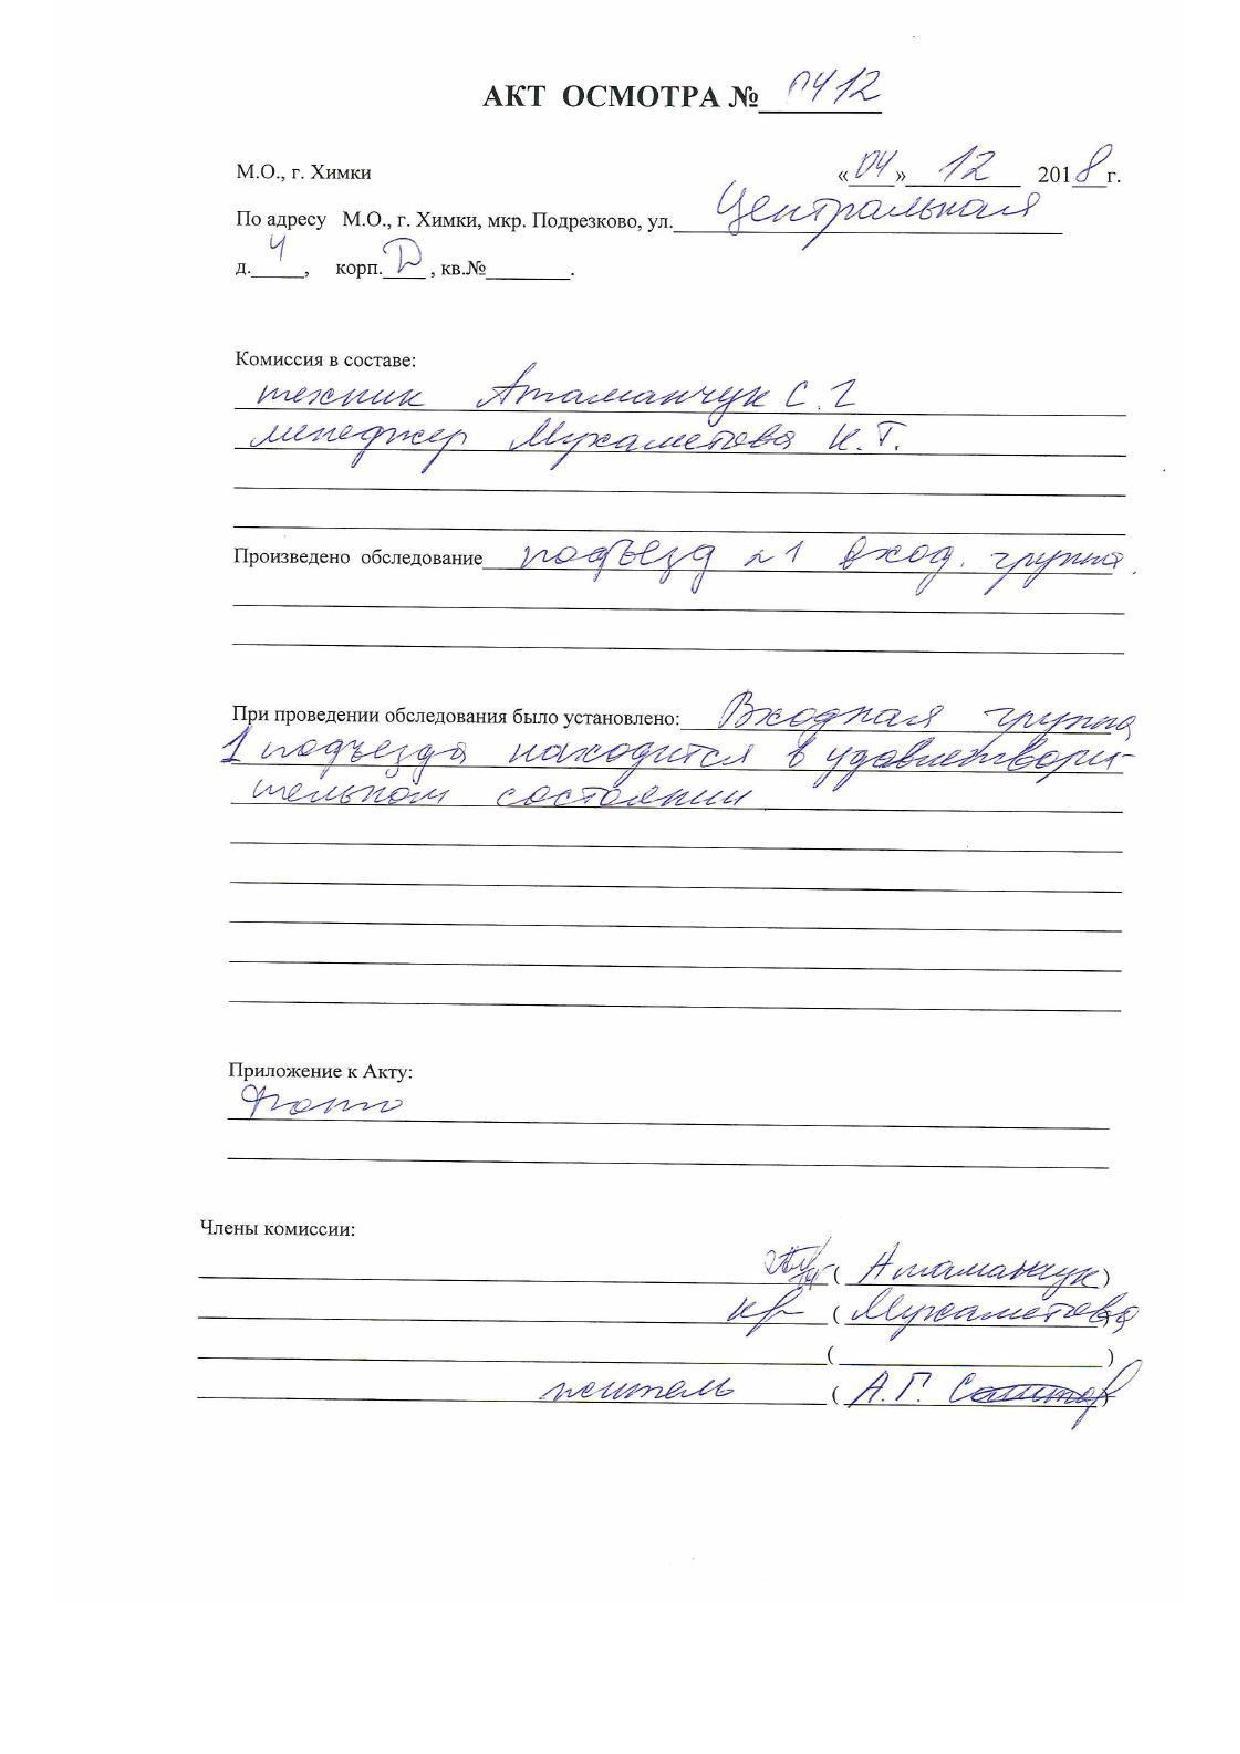 АКТ ОСМОТРА № 0412
М.О., г. Химки «04» 12 2018 г.
По адресу М.О., г. Химки, мкр. Подрезково, ул. Центральная
д. 4, корп. , кв.№ .
Комиссия в составе:
техник Атаманчук С.Г
менеджер Мухаметова К.Т.
Произведено обследование подъезд №1 вход. группа.
При проведении обследования было установлено: Входная группа
1 подъезда находится в удовлетвори-
тельном состоянии
Приложение к Акту:
Фото
Члены комиссии:
( Атаманчук )
( Мухаметова )
( )
житель ( А.Г. )